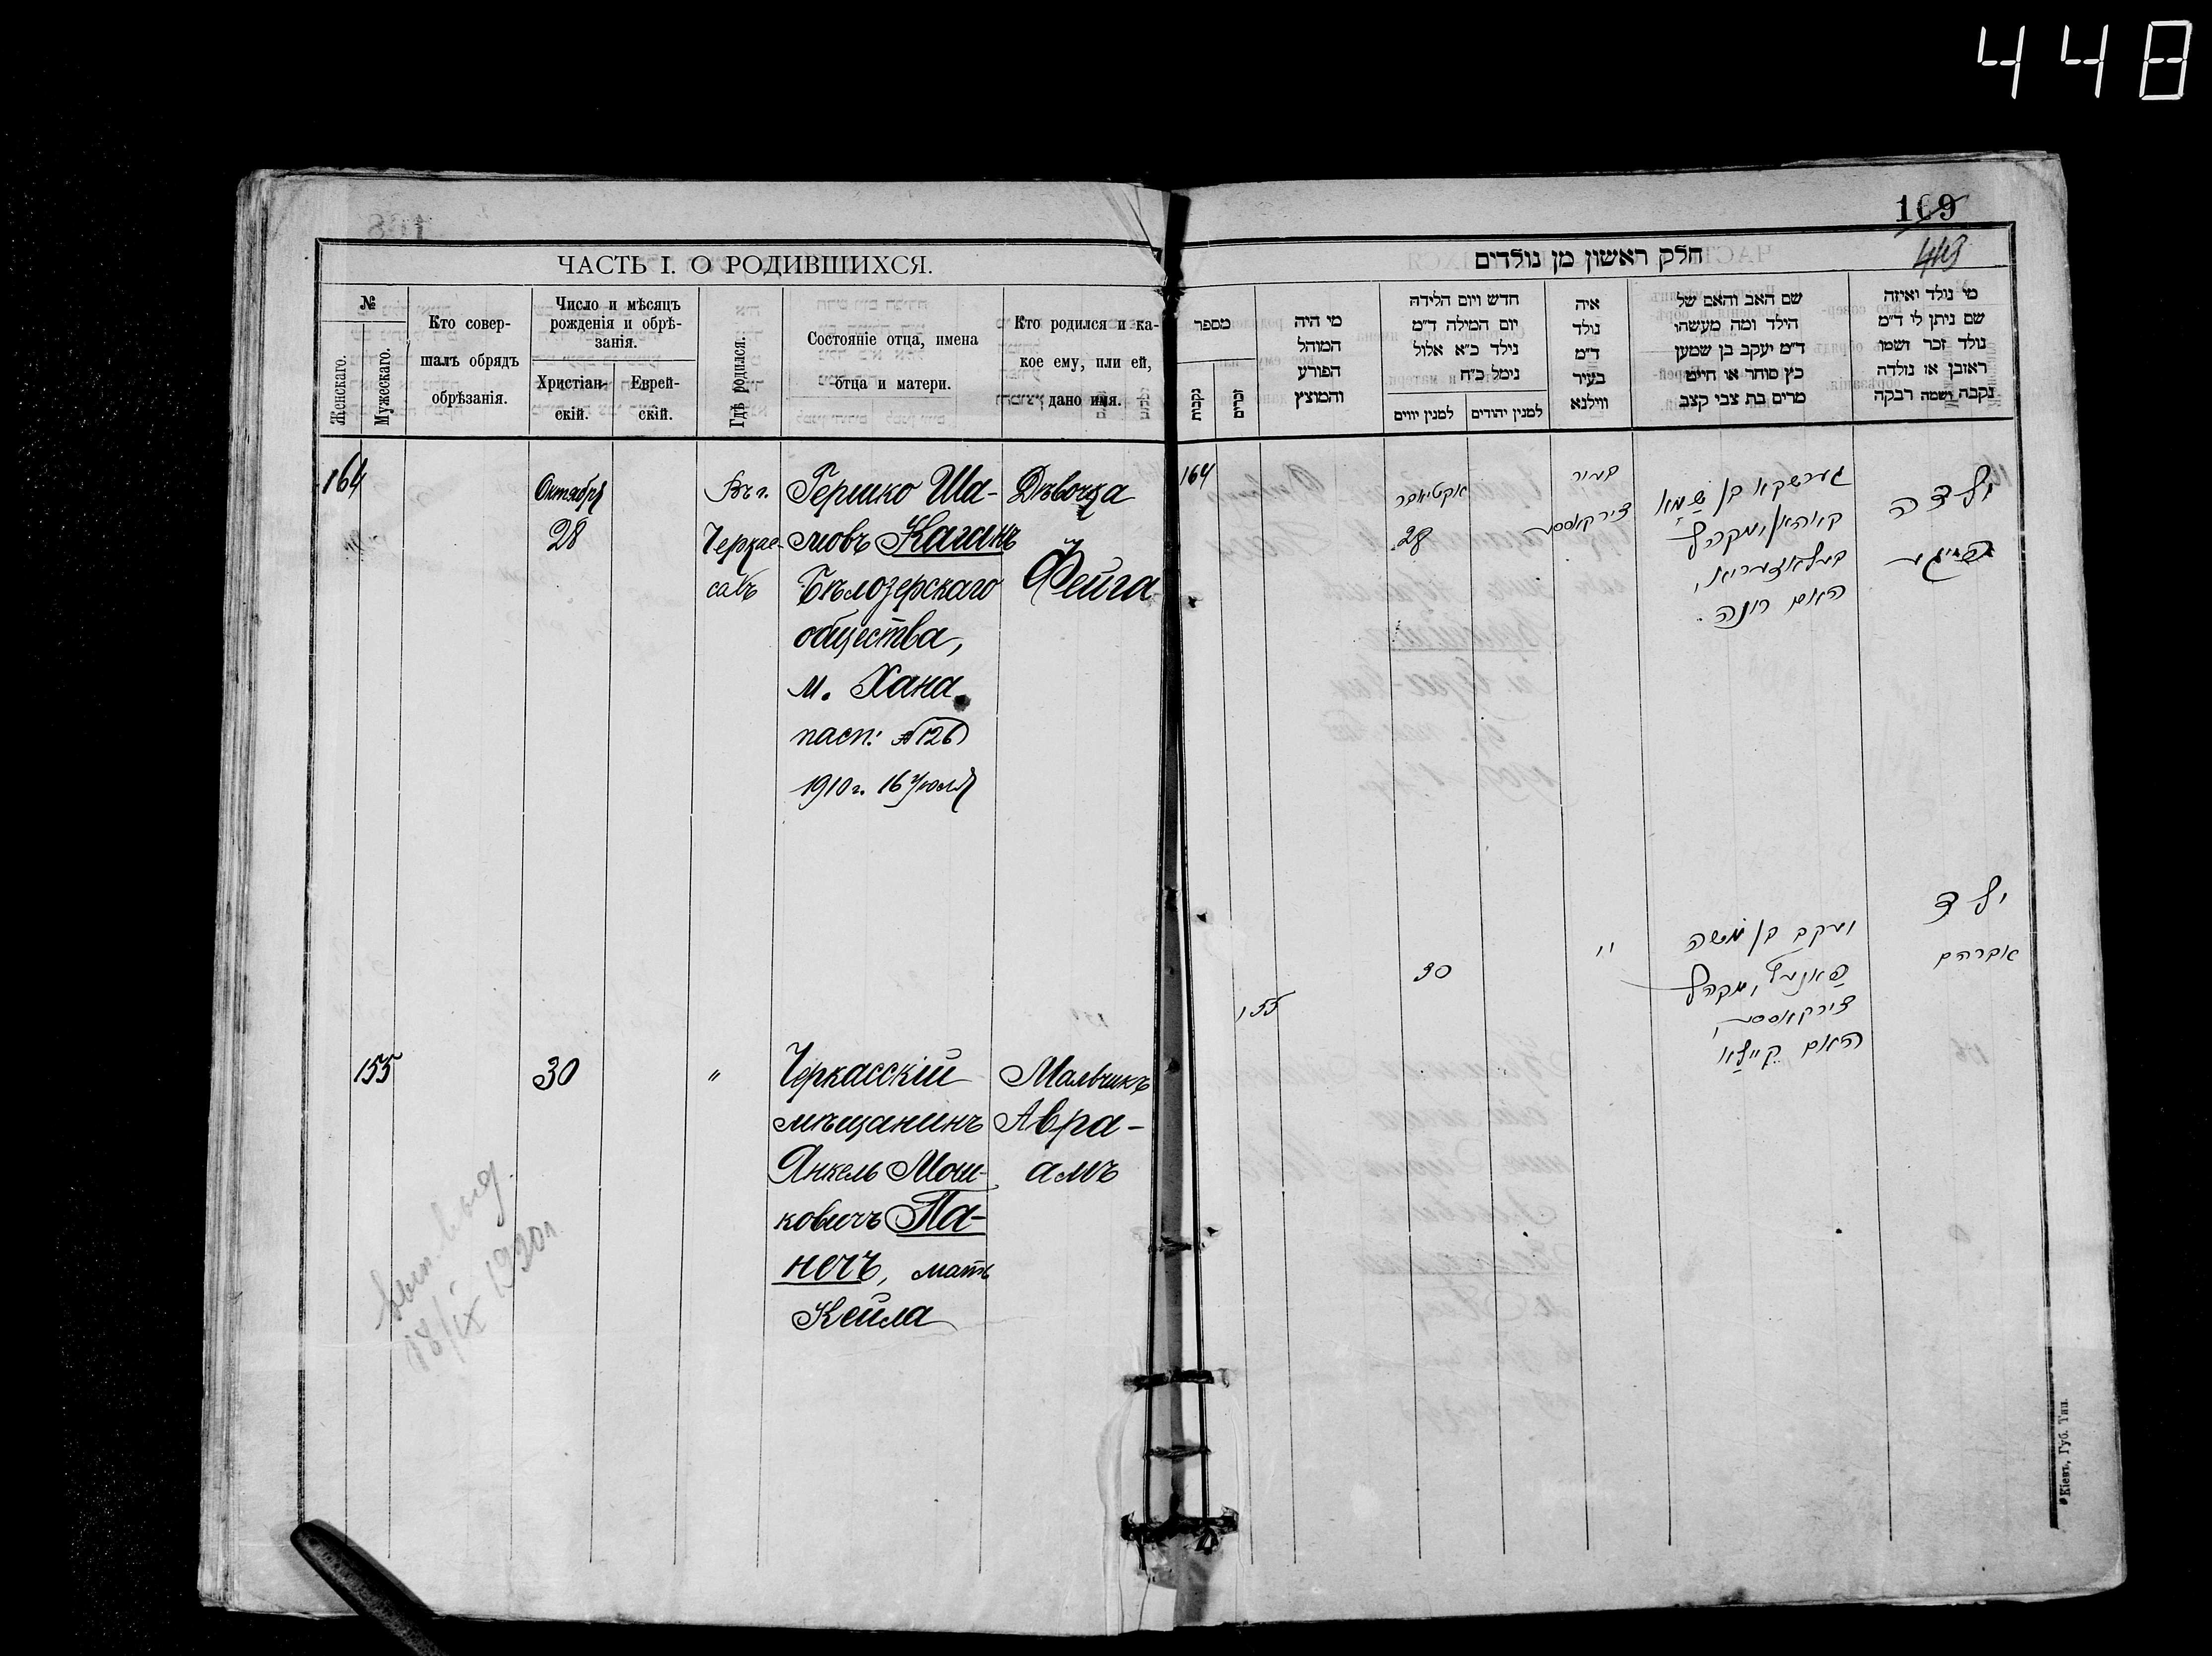 448
ЧАСТЬ I. О РОДИВШИХСЯ.
№
Женскаго.
Мужескаго.
Кто совер-
шалъ обрядъ
обрѣзанія.
Число и мѣсяцъ
рожденія и обрѣ-
занія.
Христіан-
скій.
Еврей-
скій.
Гдѣ родился.
Состояніе отца, имена
отца и матери.
Кто родился и ка-
кое ему, или ей,
дано имя.
164
Октября
28
Въ г.
Черкас-
сахъ
Гершко Ша-
мовъ Каганъ
Бѣлозерскаго
общества,
м. Хана
пасп: №126
1910 г. 16 Июля
Дѣвочка
Фейга
155
30
"
Черкасскій
мѣщанинъ
Янкель Мош-
ковичъ Па-
нечъ, мать
Кейла
Мальчикъ
Авра-
амъ
18/IX 1920 г.
169
חלק ראשון מן נולדים
מספר
נקבות
זכרים
מי היה
המוהל
הפורע
והמוצץ
חדש ויום הלידה
יום המילה ד"מ
נילד כ"א אלול
נימל כ"ח
למנין יווים
למנין יהודים
איה
נולד
ד"מ
בעיר
ווילנא
שם האב והאם של
הילד ומה מעשהו
ד"מ יעקב בן שמעון
כץ סוחר או חייט
מרים בת צבי קצב
מי נולד ואיזה
שם ניתן לו ד"מ
נולד זכר ושמו
ראובן או נולדה
נקבה ושמה רבקה
164
אקטיאבר
28
בעיר
צירקאסס
גערשקא בן שמא
קאהאן, מקהל
בעלאזעריא,
האם חנה
ילדה
פייגע
155
30
"
יעקב בן משה
פאנעץ, מקהל
צירקאסס,
האם קיילא
ילד
אברהם
Кіевъ, Губ. Тип.